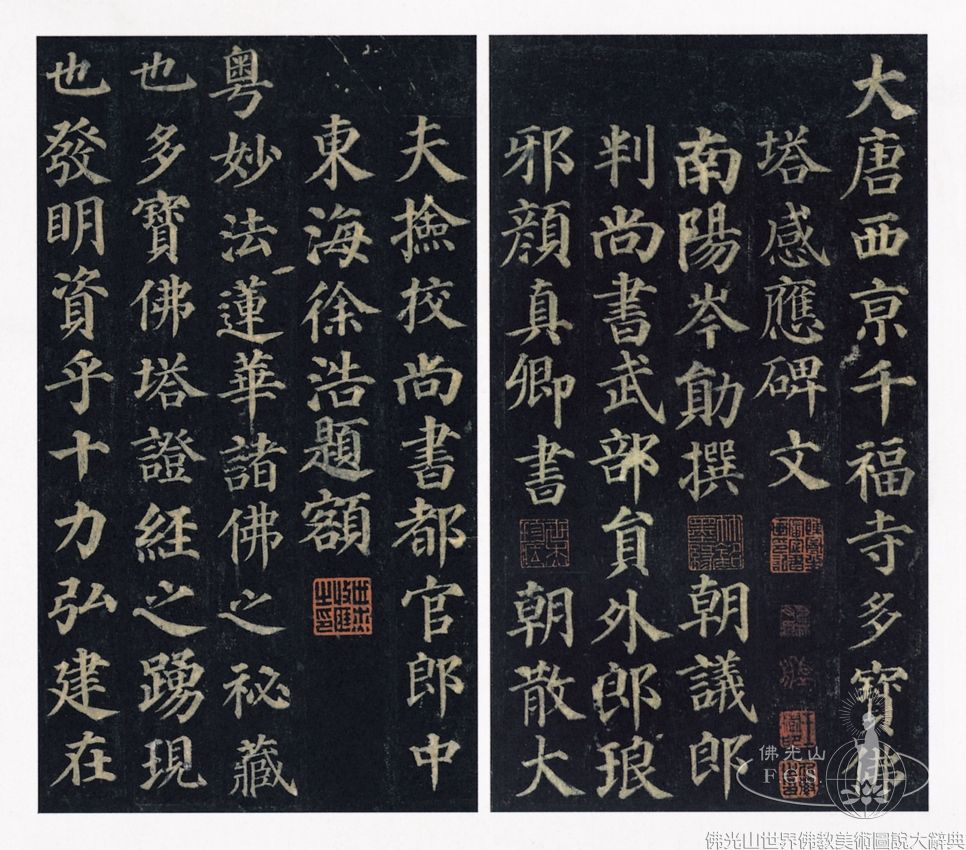 大唐西京千福寺多寶佛
塔感應碑文
南陽岑勛撰 朝議郎
判尚書武部員外郎琅
邪顏真卿書 朝散大
夫撿挍尚書都官郎中
東海徐浩題額
粵妙法蓮華諸佛之秘藏
也多寶佛塔證經之踴現
也發明資乎十力弘建在
佛光山
F.G.S.
佛光山世界佛教美術圖說大辭典